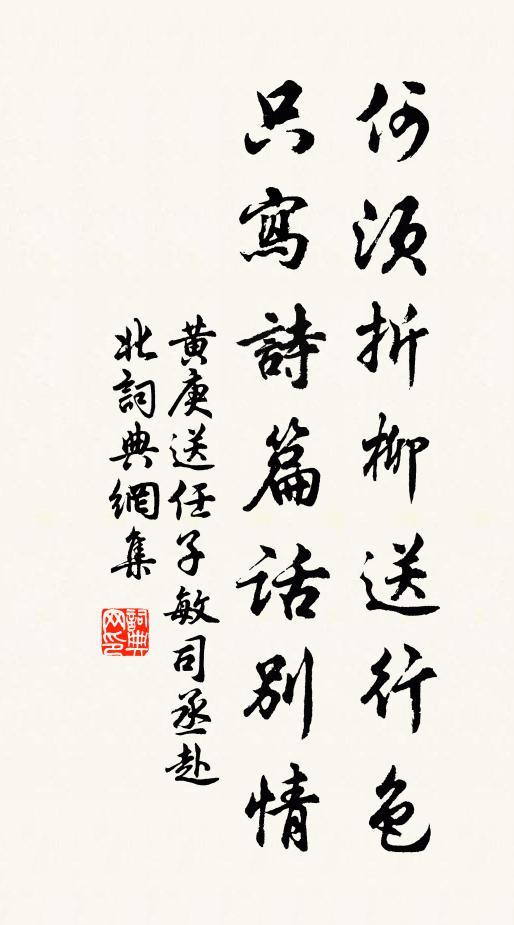 何須折柳送行色
只寫詩篇話別情
黄庚送任子敏司丞赴
北詞典網集
詞典
网印